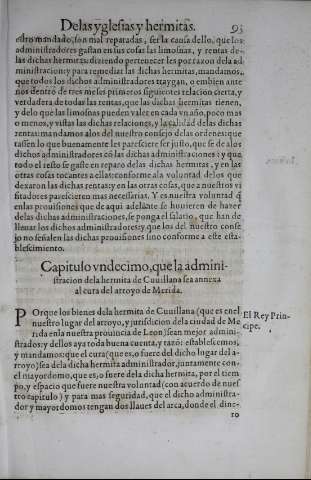 De las yglesias y hermitas. 93
estro mandado, son mal reparadas, ser la causa dello, que los
administradores gastan en sus cosas las limosnas, y rentas de-
las dichas hermitas: diziendo pertenecer les por razon dela ad
ministracion: y para remediar las dichas hermitas, mandamos,
que todos los dichos administradores traygan, o embien ante
nos dentro de tres meses primeros siguientes relacion cierta, y
verdadera de todas las rentas, que las dichas hermitas tienen,
y delo que las limosnas pueden valer en cada vn año, poco mas
o menos, y vistas las dichas relaciones, y la calidad delas dichas
rentas: mandamos alos del nuestro consejo delas ordenes: que
tassen lo que buenamente les paresciere ser justo, que se de alos
dichos administradores cõ las dichas administraciones: y que
todo el resto se gaste en reparo delas dichas hermitas, y en las
otras cosas tocantes a ellas: conforme ala voluntad delos que
dexaron las dichas rentas: y en las otras cosas, que a nuestros vi
sitadores parescieren mas necessarias. Y es nuestra voluntad q̃
enlas prouisiones que de aqui adelante se huuieren de hazer
delas dichas administraciones, se ponga el salario, que han de
lleuar los dichos administradores: y que los del nuestro conse
jo no señalen las dichas prouisiones sino conforme a este esta-
blescimiento.
Capitulo vndecimo, que la admini-
stracion dela hermita de Cuuillana sea annexa
al cura del arroyo de Merida.
POrque los bienes dela hermita de Cuuillana (que es enel
nuestro lugar del arroyo, y jurisdicion dela ciudad de Me
rida enla nuestra prouincia de Leon) sean mejor admini-
strados: y dellos aya toda buena cuenta, y razõ: establescemos,
y mandamos: que el cura (que es, o fuere del dicho lugar del a-
rroyo) sea dela dicha hermita administrador, juntamente con-
el mayordomo, que es, o fuere dela dicha hermita, por el tiem
po, y espacio que fuere nuestra voluntad (con acuerdo de nues
tro capitulo) y para mas seguridad, que el dicho administra-
dor y mayordomos tengan dos llaues del arca, donde el dine-
ro
El Rey Prin-
cipe.